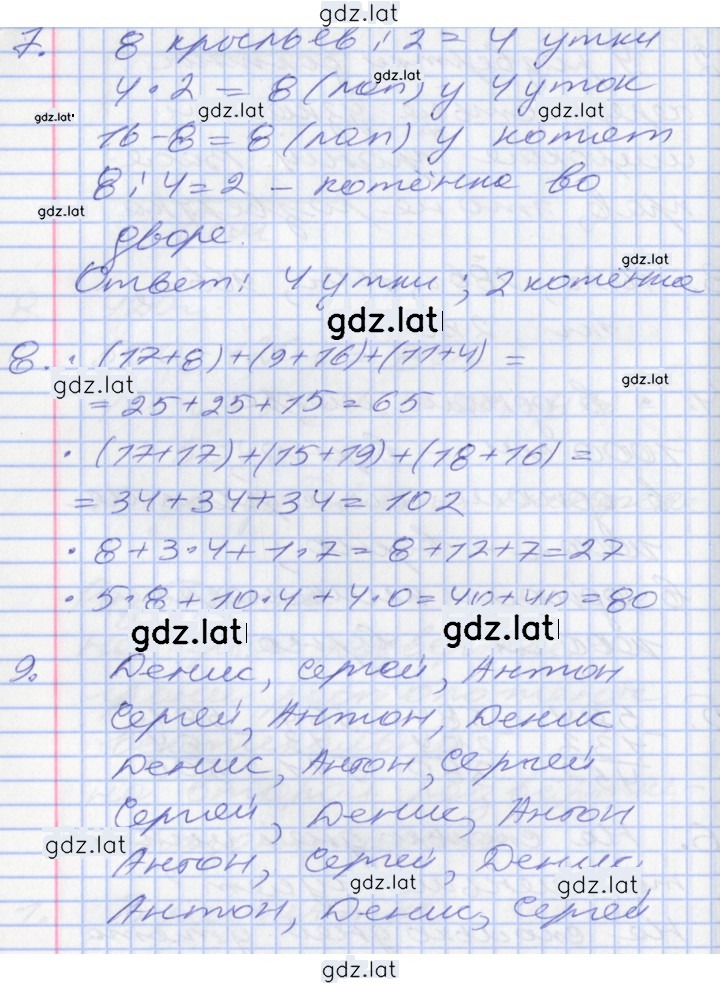 gdz.lat
7. 8 крыльев : 2 = 4 утки
gdz.lat
4 · 2 = 8 (лап) у 4 уток
gdz.lat gdz.lat gdz.lat
16 - 8 = 8 (лап) у котят
8 : 4 = 2 - котёнка во
gdz.lat
дворе.
gdz.lat
Ответ: 4 утки ; 2 котёнка
gdz.lat
8. · (17+8)+(9+16)+(11+4) =
gdz.lat gdz.lat
= 25+25+15=65
· (17+17)+(15+19)+(18+16)=
= 34+34+34= 102
· 8+3·4+1·7= 8+12+7=27
· 5·8+10·4+4·0=40+40=80
gdz.lat gdz.lat
9. Денис, Сергей, Антон
Сергей, Антон, Денис
Денис, Антон, Сергей
Сергей, Денис, Антон
gdz.lat
Антон, Сергей, Денис,
gdz.lat gdz.lat
Антон, Денис, Сергей
gdz.lat